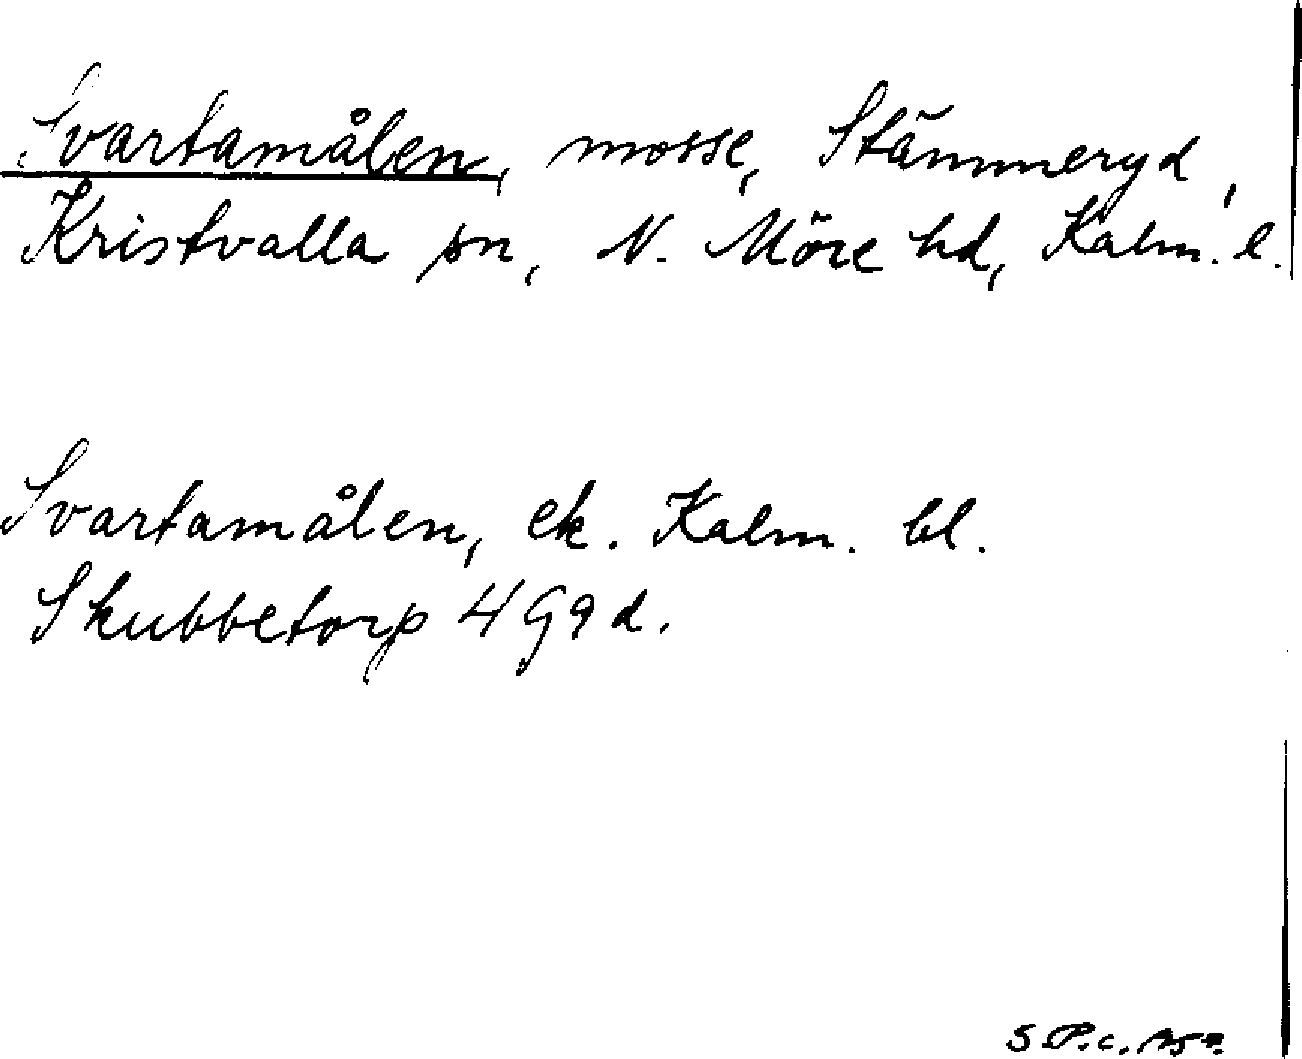 Svartamålen, mosse, Stämmeryd,
Kristvalla sn, N. Möre hd, Kalm. l.
Svartamålen, ek. Kalm. bl.
Skubbetorp 4G9d.